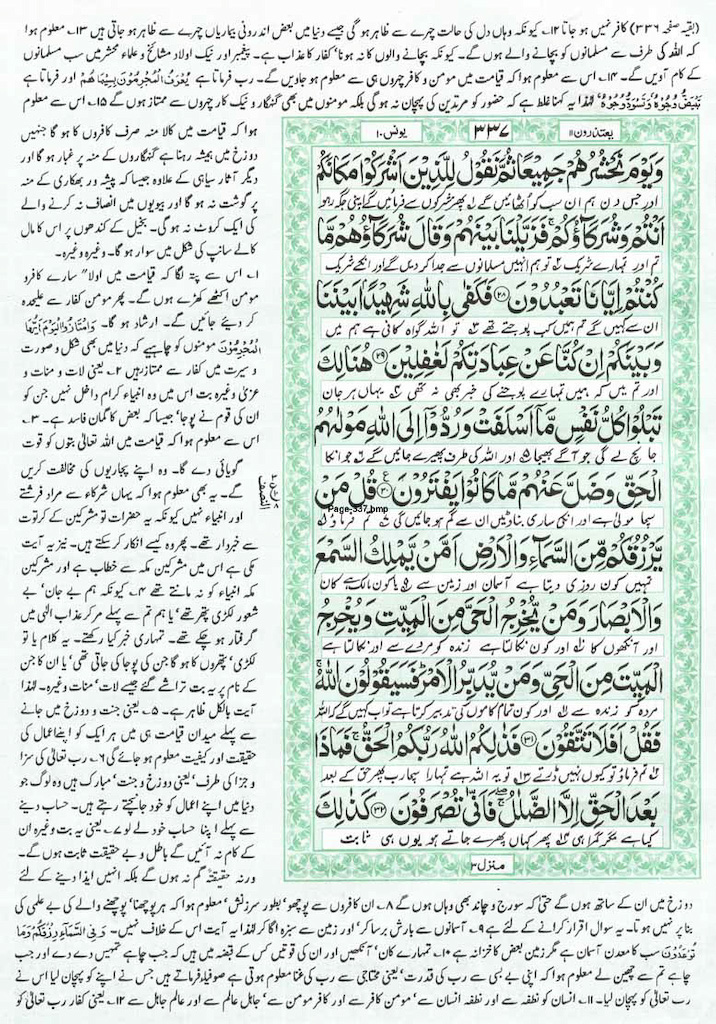 (بقیہ صفحہ ۳۳۶) کافر نہیں ہو جاتا ۱۲؂ کیونکہ وہاں دل کی حالت چہرے سے ظاہر ہو گی جیسے دنیا میں بعض اندرونی بیماریاں چہرے سے ظاہر ہو جاتی ہیں ۱۳؂ معلوم ہوا
کہ اللہ کی طرف سے مسلمانوں کو بچانے والے ہوں گے۔ کیونکہ بچانے والوں کا نہ ہونا' کفار کا عذاب ہے۔ پیغمبر اور نیک اولاد مشائخ و علماء محشر میں سب مسلمانوں
کے کام آویں گے۔ ۱۴؂ اس سے معلوم ہوا کہ قیامت میں مومن و کافر چہروں ہی سے معلوم ہو جاویں گے۔ رب فرماتا ہے یُعْرَفُ الْمُجْرِمُوْنَ بِسِیْمٰهُمْ اور فرماتا ہے
تَبْیَضُّ وُجُوْهٌ وَّتَسْوَدُّ وُجُوْهٌ' لہٰذا یہ کہنا غلط ہے کہ حضور کو مرتدین کی پہچان نہ ہو گی بلکہ مومنوں میں بھی گنہگار و نیک کار چہروں سے ممتاز ہوں گے ۱۵؂ اس سے معلوم
ہوا کہ قیامت میں کالا منہ صرف کافروں کا ہو گا جنہیں
دوزخ میں ہمیشہ رہنا ہے گنہگاروں کے منہ پر غبار ہو گا اور
دیگر آثار سیاہی کے علاوہ جیسا کہ پیشہ ور بھکاری کے منہ
پر گوشت نہ ہو گا اور بیویوں میں انصاف نہ کرنے والے
کی ایک کروٹ نہ ہو گی۔ بخیل کے کندھوں پر اس کا مال
کالے سانپ کی شکل میں سوار ہو گا۔ وغیرہ وغیرہ۔
۱؂ اس سے پتہ لگا کہ قیامت میں اولاً سارے کافر و
مومن اکٹھے کھڑے ہوں گے۔ پھر مومن کفار سے علیحدہ
کر دیئے جائیں گے۔ ارشاد ہو گا۔ وَامْتَازُوا الْیَوْمَ اَیُّهَا
الْمُجْرِمُوْنَ مومنوں کو چاہیے کہ دنیا میں بھی شکل و صورت
و سیرت میں کفار سے ممتاز ہیں ۲؂ یعنی لات و منات و
عزیٰ وغیرہ بت اس میں وہ انبیاء کرام داخل نہیں جن کو
ان کی قوم نے پوجا' جیسا کہ بعض کا گمان فاسد ہے۔ ۳؂
اس سے معلوم ہوا کہ قیامت میں اللہ تعالیٰ بتوں کو قوت
گویائی دے گا۔ وہ اپنے پجاریوں کی مخالفت کریں
گے۔ یہ بھی معلوم ہوا کہ یہاں شرکاء سے مراد فرشتے
اور انبیاء نہیں کیونکہ یہ حضرات تو مشرکین کے کرتوت
سے خبردار تھے۔ پھر وہ کیسے انکار کر سکتے ہیں۔ نیز یہ آیت
مکی ہے اس میں مشرکین مکہ سے خطاب ہے اور مشرکین
مکہ انبیاء کو نہ مانتے تھے ۴؂ کیونکہ ہم بے جان' بے
شعور لکڑی پتھر تھے' یا ہم تم سے پہلے مر کر عذاب الٰہی میں
گرفتار ہو چکے تھے۔ تمہاری خبر کیا رکھتے۔ یہ کلام یا تو
لکڑی' پتھروں کا ہو گا جن کی پوجا کی جاتی تھی' یا ان کا جن
کے نام پر یہ بت تراشے گئے جیسے لات' منات وغیرہ۔ لہٰذا
آیت بالکل ظاہر ہے۔ ۵؂ یعنی جنت و دوزخ میں جانے
سے پہلے میدان قیامت ہی میں ہر ایک کو اپنے اعمال کی
حقیقت اور کیفیت معلوم ہو جائے گی ۶؂ رب تعالیٰ کی سزا
و جزا کی طرف' یعنی دوزخ و جنت' مبارک ہیں وہ لوگ جو
دنیا میں اپنے اعمال کو خود جانچتے رہتے ہیں۔ حساب دینے
سے پہلے اپنا حساب خود لے لو ۷؂ یعنی یہ بت وغیرہ ان
کے کام نہ آئیں گے باطل و بے حقیقت ثابت ہوں گے۔
ورنہ حقیقتہً گم نہ ہوں گے بلکہ انہیں ایذا دینے کے لئے
یعتذرون ۱۱
۳۳۷
یونس ۱۰
وَیَوْمَ نَحْشُرُهُمْ جَمِیْعًا ثُمَّ نَقُوْلُ لِلَّذِیْنَ اَشْرَكُوْا مَكَانَكُمْ
اور جس دن ہم ان سب کو اٹھائیں گے پھر مشرکوں سے فرمائیں گے اپنی جگہ رہو
اَنْتُمْ وَشُرَكَآؤُكُمْ ۚ فَزَیَّلْنَا بَیْنَهُمْ وَقَالَ شُرَكَآؤُهُمْ مَّا
تم اور تمہارے شریک تو ہم انہیں مسلمانوں سے جدا کر دیں گے اور انکے شریک
كُنْتُمْ اِیَّانَا تَعْبُدُوْنَ ﴿۲۸﴾ فَكَفٰی بِاللّٰهِ شَهِیْدًۢا بَیْنَنَا
ان سے کہیں گے تم ہمیں کب پوجتے تھے تو اللہ گواہ کافی ہے ہم میں
وَبَیْنَكُمْ اِنْ كُنَّا عَنْ عِبَادَتِكُمْ لَغٰفِلِیْنَ ﴿۲۹﴾ هُنَالِكَ
اور تم میں کہ ہمیں تمہارے پوجنے کی خبر بھی نہ تھی یہاں ہر جان
تَبْلُوْا كُلُّ نَفْسٍ مَّاۤ اَسْلَفَتْ وَرُدُّوْۤا اِلَی اللّٰهِ مَوْلٰىهُمُ
جانچ لے گی جو آگے بھیجا اور اللہ کی طرف پھیرے جائیں گے جو انکا
الْحَقِّ وَضَلَّ عَنْهُمْ مَّا كَانُوْا یَفْتَرُوْنَ ﴿۳۰﴾ قُلْ مَنْ
سچا مولیٰ ہے اور انکی ساری بناوٹیں ان سے گم ہو جائیں گی تم فرماؤ
Page-337.bmp
یَّرْزُقُكُمْ مِّنَ السَّمَآءِ وَالْاَرْضِ اَمَّنْ یَّمْلِكُ السَّمْعَ
تمہیں کون روزی دیتا ہے آسمان اور زمین سے یا کون مالک ہے کان
وَالْاَبْصَارَ وَمَنْ یُّخْرِجُ الْحَیَّ مِنَ الْمَیِّتِ وَیُخْرِجُ
اور آنکھوں کا اور کون نکالتا ہے زندہ کو مردے سے اور نکالتا ہے
الْمَیِّتَ مِنَ الْحَیِّ وَمَنْ یُّدَبِّرُ الْاَمْرَ ؕ فَسَیَقُوْلُوْنَ اللّٰهُ ۚ
مردہ کو زندہ سے اور کون تمام کاموں کی تدبیر کرتا ہے تو اب کہیں گے کہ اللہ
فَقُلْ اَفَلَا تَتَّقُوْنَ ﴿۳۱﴾ فَذٰلِكُمُ اللّٰهُ رَبُّكُمُ الْحَقُّ ۚ فَمَاذَا
تم فرماؤ تو کیوں نہیں ڈرتے تو یہ اللہ ہے تمہارا سچا رب پھر حق کے بعد
بَعْدَ الْحَقِّ اِلَّا الضَّلٰلُ ۖۚ فَاَنّٰی تُصْرَفُوْنَ ﴿۳۲﴾ كَذٰلِكَ
کیا ہے مگر گمراہی پھر کہاں پھرے جاتے ہو یوں ہی ثابت
منزل ۳
دوزخ میں ان کے ساتھ ہوں گے حتیٰ کہ سورج و چاند بھی وہاں ہوں گے ۸؂ ان کافروں سے پوچھو' بطور سرزنش' معلوم ہوا کہ ہر پوچھنا' پوچھنے والے کی بے علمی کی
بنا پر نہیں ہوتا۔ یہ سوال اقرار کرانے کے لئے ہے ۹؂ آسمانوں سے بارش برسا کر' اور زمین سے سبزہ اگا کر لہٰذا یہ آیت اس کے خلاف نہیں۔ وَفِی السَّمَآءِ رِزْقُكُمْ وَمَا
تُوْعَدُوْنَ سب کا معدن آسمان ہے مگر زمین بعض کا خزانہ ہے ۱۰؂ تمہارے کان' آنکھیں اور ان کی قوتیں کس کے قبضہ میں ہیں کہ جب چاہے تمہیں دے دے اور جب
چاہے تم سے چھین لے معلوم ہوا کہ اپنی بے بسی سے رب کی قدرت' یعنی محتاجی سے رب کی غنا معلوم ہوتی ہے صوفیاء فرماتے ہیں جس نے اپنے کو پہچان لیا اس نے
رب کو پہچان لیا۔ ۱۱؂ انسان کو نطفہ سے اور نطفہ انسان سے' مومن کافر سے اور کافر مومن سے' جاہل عالم سے اور عالم جاہل سے ۱۲؂ یعنی کفار رب تعالیٰ کو